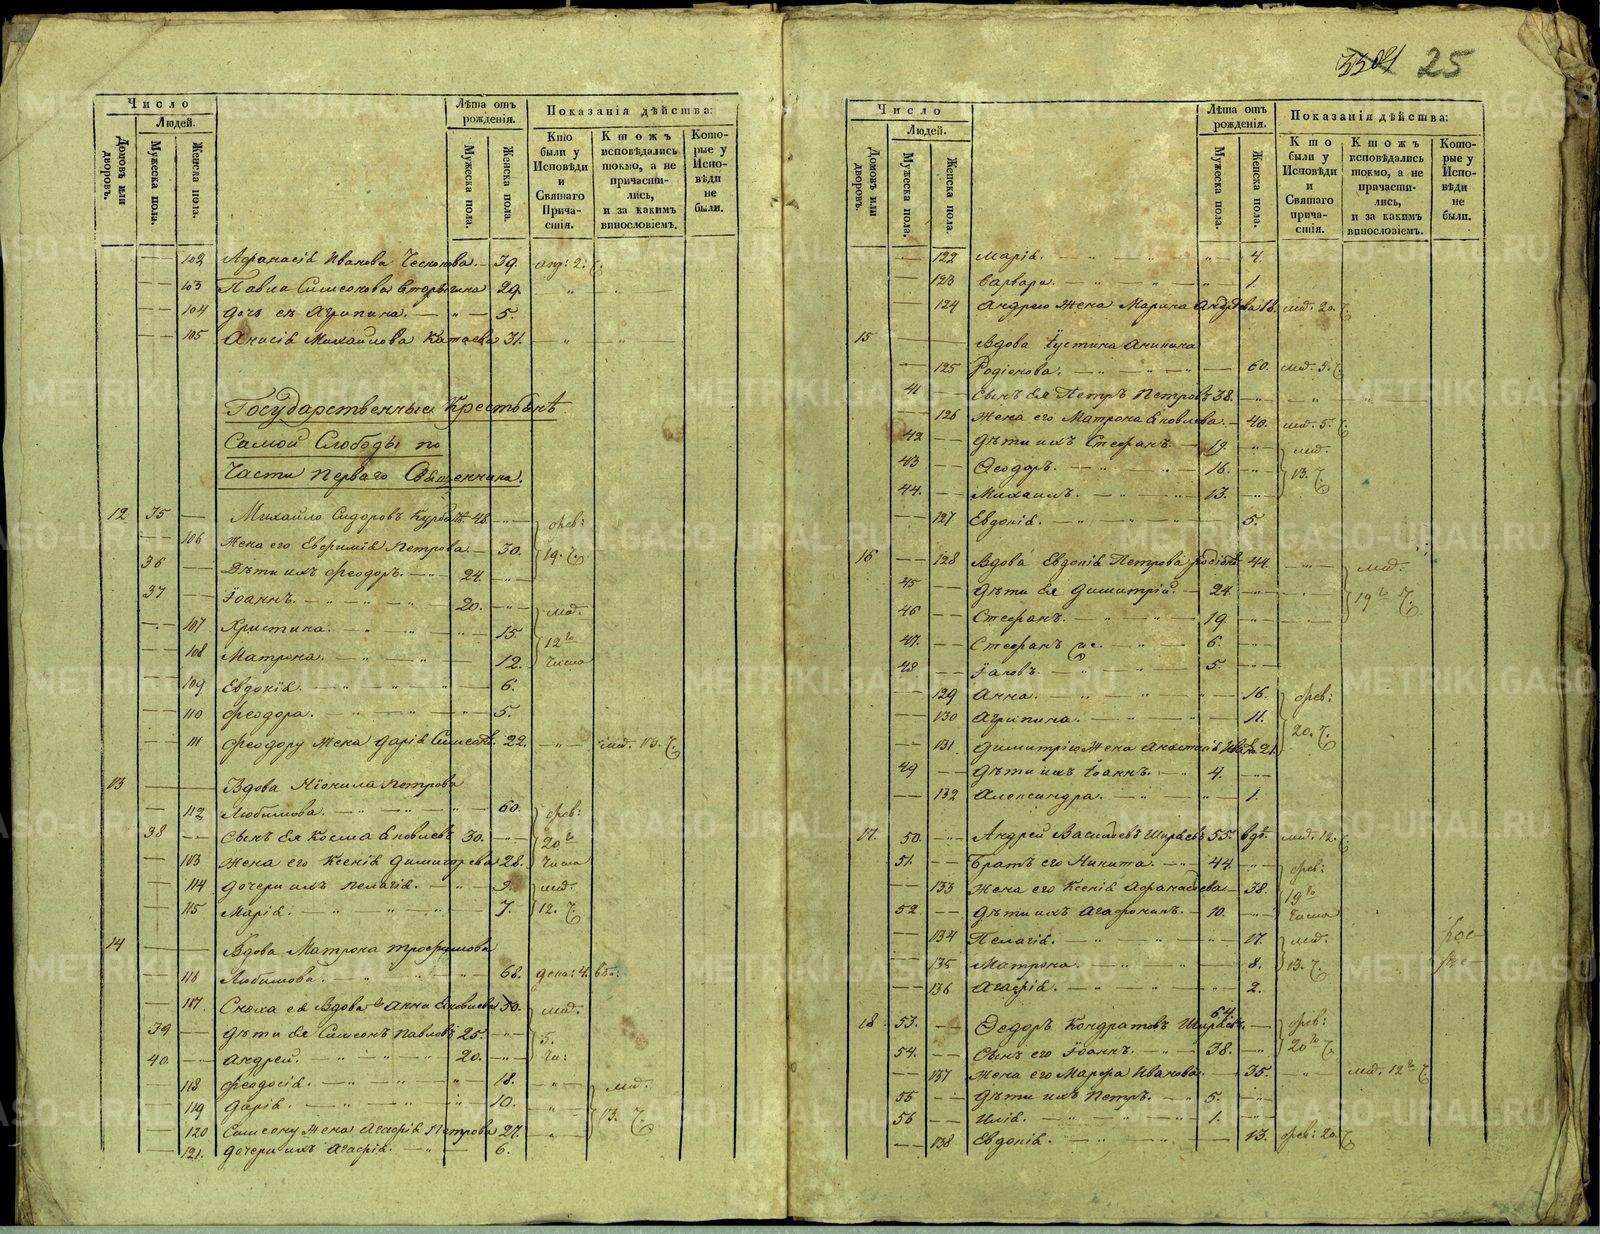 3301 25
Число
Людей.
Домовъ или дворовъ.
Мужеска пола.
Женска пола.
Лѣта отъ рожденія.
Мужеска пола.
Женска пола.
Показанія дѣйства:
Кто были у Исповѣди и Святаго Причастія.
Ктожъ исповѣдались токмо, а не причастились, и за какимъ винословіемъ.
Которые у Исповѣди не были.
102 Афанасія Иванова 39.
103 Павла Симеонова 29
104 дочь ея Агрипина. 5.
105 Анисія Михайлова Катаева 31.
Государственные Крестьянѣ
Самой Слободы по
Части Перваго Священника.
12 35 Михайло Сидоровъ 48.
106 Жена его Евфимія Петрова 30. 19. Ч.
36 Дѣти ихъ Феодоръ. 24.
37 Іоаннъ. 20.
107 Христина. 15. 12го
108 Матрона. 12. Числа
109 Евдокія. 6.
110 Феодора. 5.
111 Феодору Жена Дарія 22. 13. Ч.
13 Вдова Неонила Петрова
112 Любимова. 60. фев:
38 Сынъ ея Косма Яковлевъ 30. 20го
103 Жена его Ксенія Димитрева 28. Числа
114 дочери ихъ Пелагія. 9.
115 Марія. 7. 12. Ч.
14 Вдова Матрона Трофимова
116 Любимова. 68. дека: 4.
117 Сноха ея Вдова Анна Яковлева 50.
39 Дѣти ея Симеонъ Павловъ 25. 5.
40 Андрей. 20. Чи:
118 Феодосія. 18.
119 Дарія. 10. 13. Ч.
120 Симеону Жена Агафія Петрова 27.
121. дочери ихъ Агафія. 6.
Число
Людей.
Домовъ или дворовъ.
Мужеска пола.
Женска пола.
Лѣта отъ рожденія.
Мужеска пола.
Женска пола.
Показанія дѣйства:
Кто были у Исповѣди и Святаго причастія.
Ктожъ исповѣдались токмо, а не причастились, и за какимъ винословіемъ.
Которые у Исповѣди не были.
122 Марія. 4.
123 Варвара. 1.
124 Андрею Жена Марина 18. 20. Ч.
15 Вдова Іустина
125 Родіонова. 60. 5. Ч.
41 Сынъ ея Петръ Петровъ 38.
126 Жена его Матрона Яковлева. 40. 5. Ч.
42 Дѣти ихъ Стефанъ 19.
43 Феодоръ. 16. 13. Ч.
44. Михаилъ. 13.
127 Евдокія. 5.
16 128 Вдова Евдокія Петрова 44.
45 Дѣти ея Димитрій. 24. 19го Ч.
46 Стефанъ. 19.
47. Стефанъ 6.
48 Іаковъ. 5.
129 Анна. 16. фев:
130 Агрипина. 11. 20. Ч.
131 Димитрію Жена Анастасія 21.
49 Дѣти ихъ Іоаннъ. 4.
132 Александра. 1.
17. 50. Андрей Васильевъ Ширяевъ 55. 12. Ч.
51. Братъ его Никита. 44. фев:
133 Жена его Ксенія Афанасьева 38. 19го
52 Дѣти ихъ Агафонъ. 10. Числа
134 Пелагія. 17.
135 Матрона. 8. 13. Ч.
136 Агафія. 2.
18 53. Ѳедоръ Кондратовъ Ширяевъ. 64. фев:
54. Сынъ его Іоаннъ. 38. 20го Ч.
137 Жена его Марфа Иванова. 35. 12го Ч.
55 Дѣти ихъ Петръ. 5.
56 Илія. 1.
138 Евдокія. 13. фев: 20. Ч.
METRIKI.GASO-URAL.RU